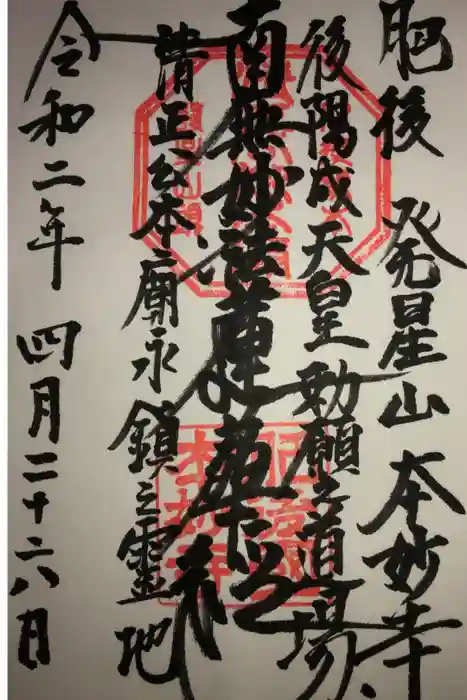 肥後 発星山 本妙寺
後陽成天皇勅願之道場
南無妙法蓮華経
清正公本廟永鎮之靈地
令和二年 四月二十六日
本妙寺